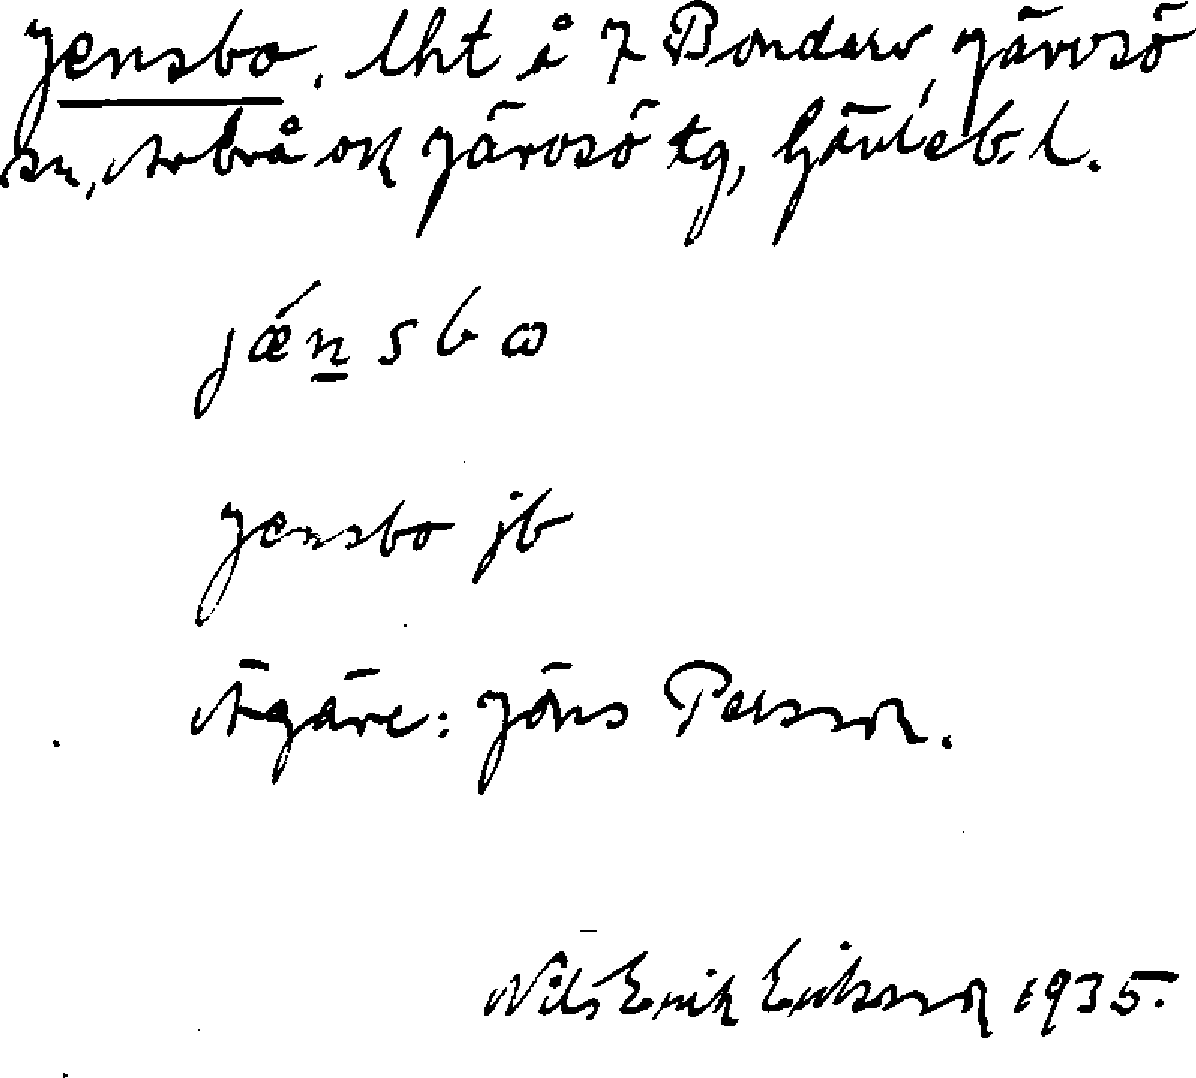 Jensbo, lht å 7 Bondarv, Järvsö
sn, Arbrå ock Järvsö tg, Gävleb. l.
jǽn̲sbω
Jensbo jb
Ägare: Jöns Persson.
Nils Erik Eriksson 1935.